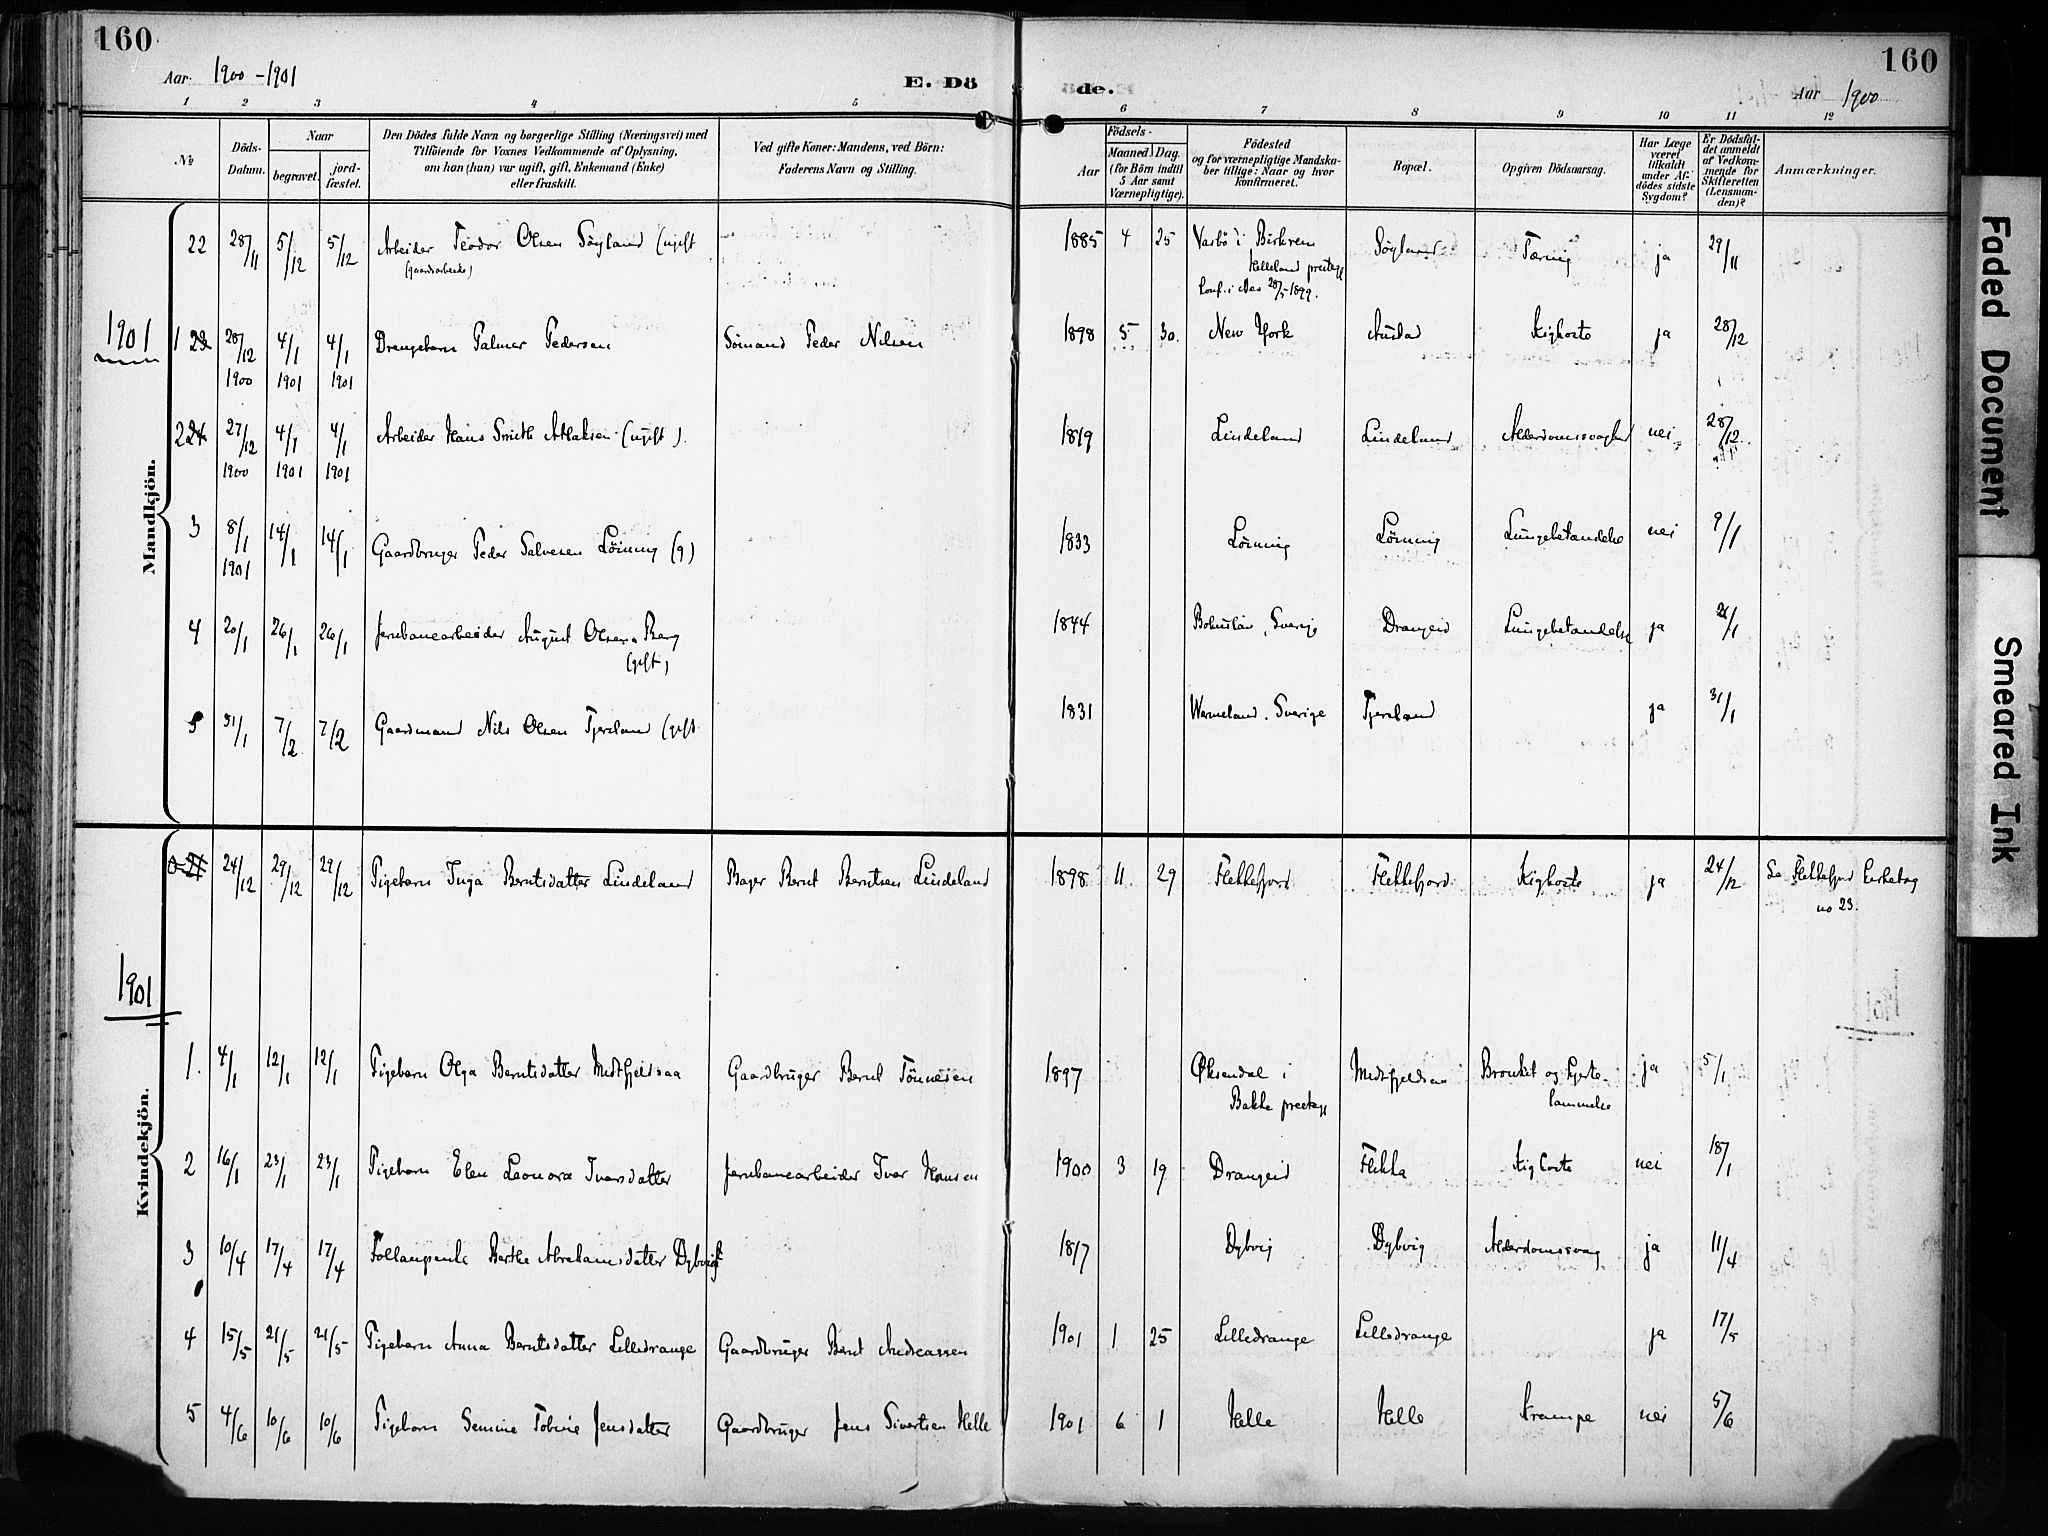 160
160
Aar: 1900-1901
E. Döde.
Aar 1900
1 2 3 4 5 6 7 8 9 10 11 12
№
Döds-Datum.
Naar
begravet.
jord-fæstet.
Den Dödes fulde Navn og borgerlige Stilling (Næringsvei) med
Tilföiende for Voxnes Vedkommende af Oplysning,
om han (hun) var ugift, gift, Enkemand (Enke)
eller fraskilt.
Ved gifte Koner: Mandens, ved Börn:
Faderens Navn og Stilling.
Födsels-
Aar
Maaned. Dag.
(for Börn indtil
5 Aar samt
Værnepligtige).
Födested
og for værnepligtige Mandska-
ber tillige: Naar og hvor
konfirmeret.
Bopæl.
Opgiven Dödsaarsag.
Har Læge
været
tilkaldt
under Af-
dödes sidste
Sygdom?
Er Dödsfal-
det anmeldt
af Vedkom-
mende for
Skifteretten
(Lensman-
den)?
Anmærkninger.
Mandkjön.
22 28/11 5/12 5/12 Arbeider Teodor Olsen Søyland (ugift 1885 4 25 i Birkrem Søyland Tæring ja 29/11
(gaardsarbeide) Helleland prestegj
konf. i Nes 28/5 1899.
1901
1 23 28/12 1900 4/1 1901 4/1 1901 Drengebarn Palmer Pedersen Sömand Peder Nilsen 1898 5 30. New York Austad Kighoste ja 28/12
2 24 27/12 1900 4/1 1901 4/1 1901 Arbeider Hans Smith Atlaksen (ugift). 1819 Lindeland Lindeland Alderdomssvaghed nei 28/12
3 8/1 1901 14/1 14/1 Gaardbruger Peder Salvesen Löining (g) 1833 Löining Löining Lungebetændelse nei 9/1
4 20/1 26/1 26/1 Jernbanearbeider August Olsen Berg 1844 Bohuslän, Sverige Drangeid Lungebetændelse ja 21/1
(gift)
5 31/1 7/2 7/2 Gaardmand Nils Olsen Tjersland (gift 1831 Wermeland. Sverige Tjersland ja 31/1
Kvindekjön.
24/12 29/12 29/12 Pigebarn Inga Berntsdatter Lindeland Bager Bernt Berntsen Lindeland 1898 11 29 Flekkefjord Flekkefjord Kighoste ja 24/12 Se Flekkefjord kirkebog
no 23.
1901
1. 4/1 12/1 12/1 Pigebarn Olga Berntsdatter Midtfjeldsaa Gaardbruger Bernt Tönnesen 1897 Øksendal i Midtfjeldsaa Bronkit og Hjerte- ja 5/1
Bakke prestegj lammelse
2 16/1 23/1 23/1 Pigebarn Elen Leonora Iversdatter Jernbanearbeider Iver Hansen 1900 3 19 Drangeid Flikka Kighoste nei 18/1
3 10/4 17/4 17/4 Follaugsenke Berthe Abrahamsdatter Dybvig 1817 Dybvig Dybvig Alderdomssvag ja 11/4
4 15/5 21/5 21/5 Pigebarn Anna Berntsdatter Lilledrange Gaardbruger Bernt Andreassen 1901 1 25 Lilledrange Lilledrange ja 17/5
5 4/6 10/6 10/6 Pigebarn Semine Tobine Jensdatter Gaardbruger Jens Sivertsen Helle 1901 6 1 Helle Helle Krampe nei 5/6
Faded Document
Smeared Ink